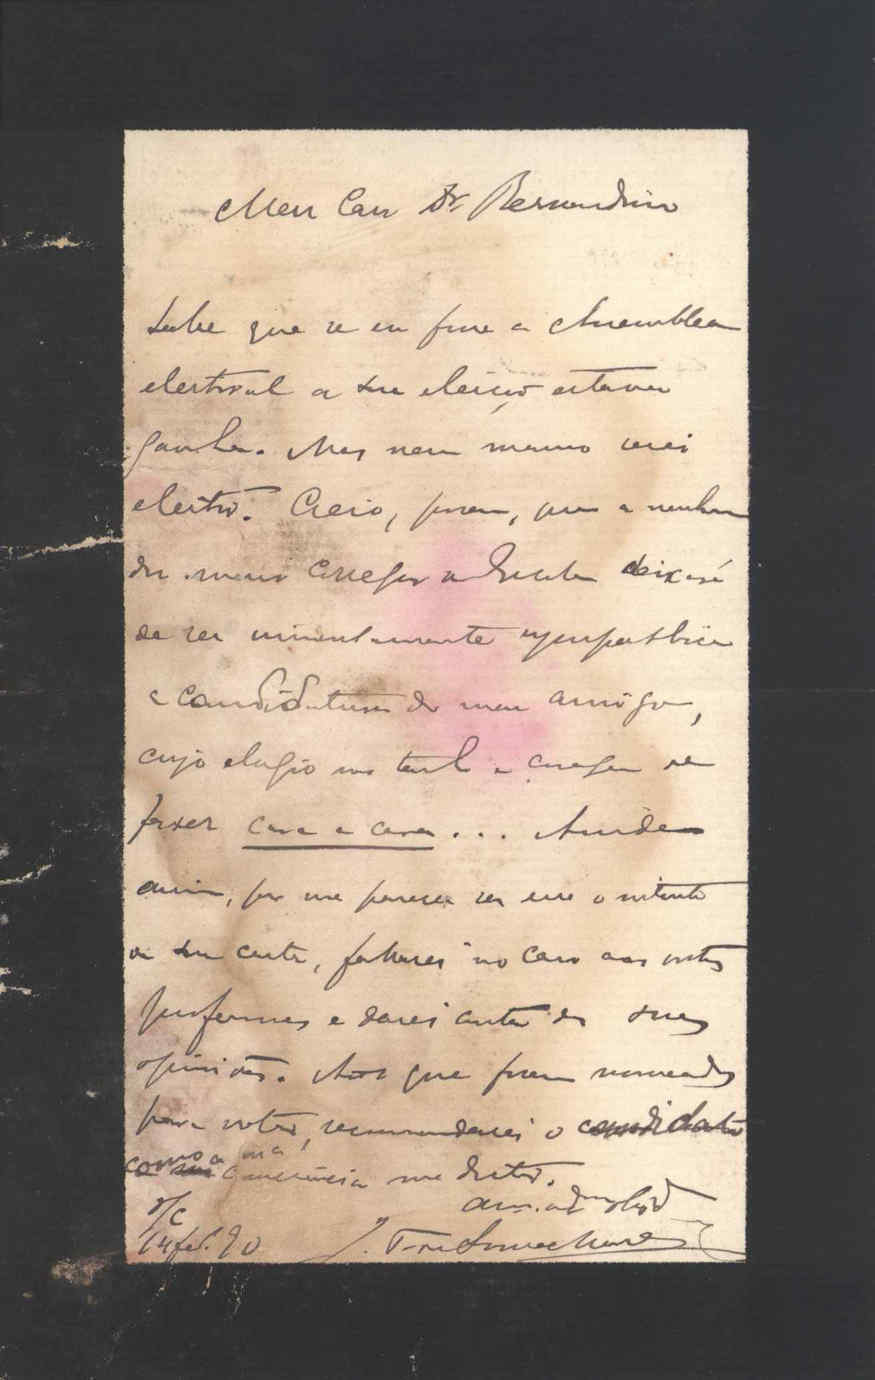 Meu Caro Dr. Bernardino
Sabe que se eu fosse a Assemblea
eleitoral a sua eleição estava
ganha. Mas nem mesmo serei
eleitor. Creio, porem, que a nenhum
de meus collegas deixará
de ser sympathica
a candidatura do meu amigo,
cujo elogio
fazer cara a cara... Ainda
assim, por me parecer ser esse o intento
da sua carta, fallarei no caso aos
professores e darei conta de suas
opiniões. Aos que forem nomeados
para votar, recommendarei o candidato
como a m.ª consciencia me dictar.
am.º
S/C
14 fev. 90
J.